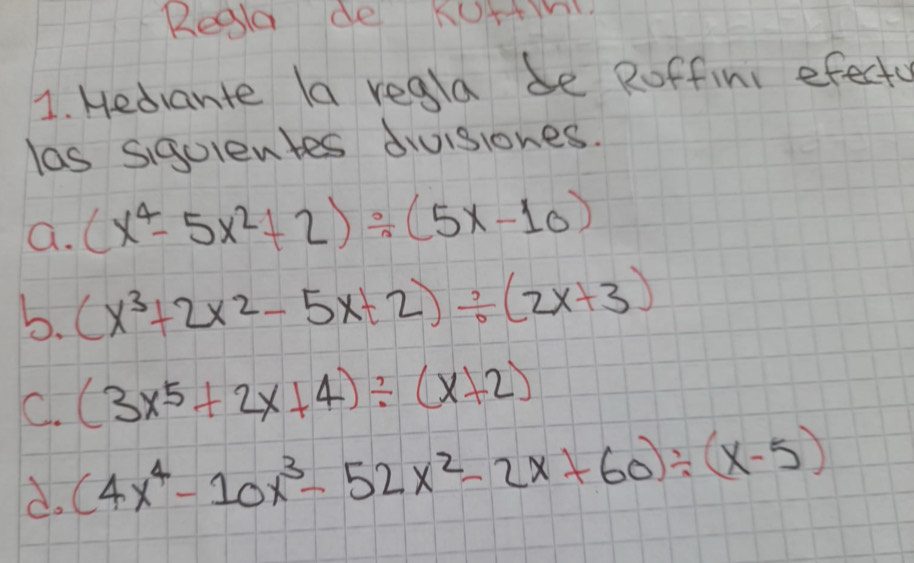 Regla de Ruffini.
1. Mediante la regla de Ruffini
las siguientes divisiones.
a. (x⁴ - 5x² + 2) ÷ (5x - 10)
b. (x³ + 2x² - 5x + 2) ÷ (2x + 3)
c. (3x⁵ + 2x + 4) ÷ (x + 2)
d. (4x⁴ - 10x³ - 52x² - 2x + 60) ÷ (x - 5)